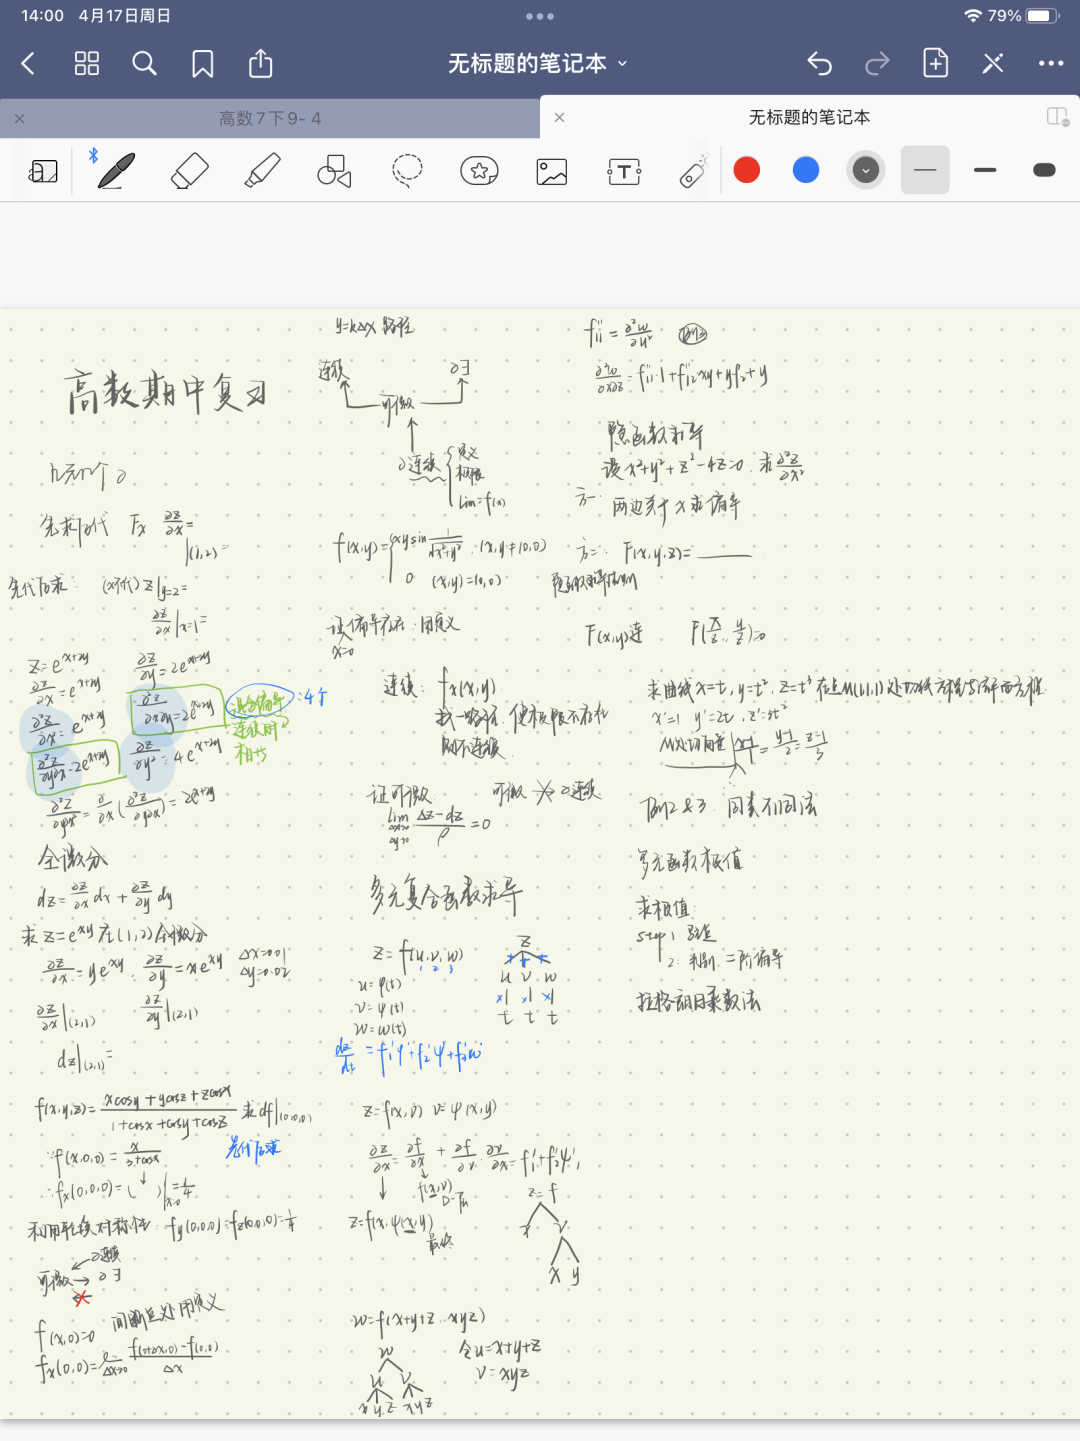 14:00 4月17日周日
79%
无标题的笔记本
高数7下9-4
无标题的笔记本
高数期中复习
先求后代 Fx ∂z/∂x=
|(1,2)=
先代后求 z|y=2=
∂z/∂x|x=1=
z=e^x+2y ∂z/∂y=2e^x+2y
∂z/∂x=e^x+2y
∂²z/∂x²=e^x+2y ∂²z/∂x∂y=2e^x+2y 混合偏导:4个
连续时
相等
∂²z/∂y∂x=2e^x+2y ∂²z/∂y²=4e^x+2y
全微分
dz=∂z/∂x dx+∂z/∂y dy
求z=e^xy在(1,2)全微分
∂z/∂x=ye^xy, ∂z/∂y=xe^xy Δx=0.01
Δy=0.02
∂z/∂x|(2,1) ∂z/∂y|(2,1)
dz|(2,1)=
f(x,y,z)=(xcosy+ycosz+zcosx)/(1+cosx+cosy+cosz) 求df|(0,0,0)
先代后求
∵f(x,0,0)=x/(3+cosx)
∴fx(0,0,0)=( )'|x=0=1/4
利用轮换对称性: fy(0,0,0)=fz(0,0,0)=1/4
∂连续
可微→∂∃
间断点处用定义
f(x,0)=0
fx(0,0)=lim Δx→0 (f(0+Δx,0)-f(0,0))/Δx
y=kΔx 路径
连续 ∂∃
可微
∂连续 定义
极限
lim=f(x)
f(x,y)={xysin 1/√(x²+y²), (x,y)≠(0,0)
0 (x,y)=(0,0)
证偏导存在:用定义
x=0
连续: fx(x,y)
找一路径, 使极限不存在
则不连续
证可微 可微 ∂连续
lim Δx→0 Δy→0 (Δz-dz)/ρ=0
多元复合函数求导
z=f(u,v,w) z
1 2 3
u=φ(t) u v w
v=ψ(t)
w=w(t) t t t
dz/dt=f1'φ'+f2'ψ'+f3'w'
z=f(x,v) v=ψ(x,y)
∂z/∂x=∂f/∂x+∂f/∂v·∂v/∂x=f1'+f2'ψ1'
f(x,v)
z=f
z=f(x,ψ(x,y)) x v
最终
x y
w=f(x+y+z, xyz)
w 令u=x+y+z
u v v=xyz
x y z x y z
f11''=∂²w/∂u²
∂²w/∂x∂z=f11''·1+f12''xy+yf2+y
隐函数求导
设x²+y²+z²-4z=0,求∂²z/∂x²
方一. 两边关于x求偏导
方二. F(x,y,z)=
F(x,y)连 F(x/z, y/z)=0
求曲线x=t,y=t²,z=t³在点M(1,1,1)处切线方程与法平面方程
x'=1 y'=2t,z'=3t²
M处切向量 (x-1)/1=(y-1)/2=(z-1)/3
同类不同法
多元函数极值
求极值:
step 1: 驻点
2: 判别,二阶偏导
拉格朗日乘数法